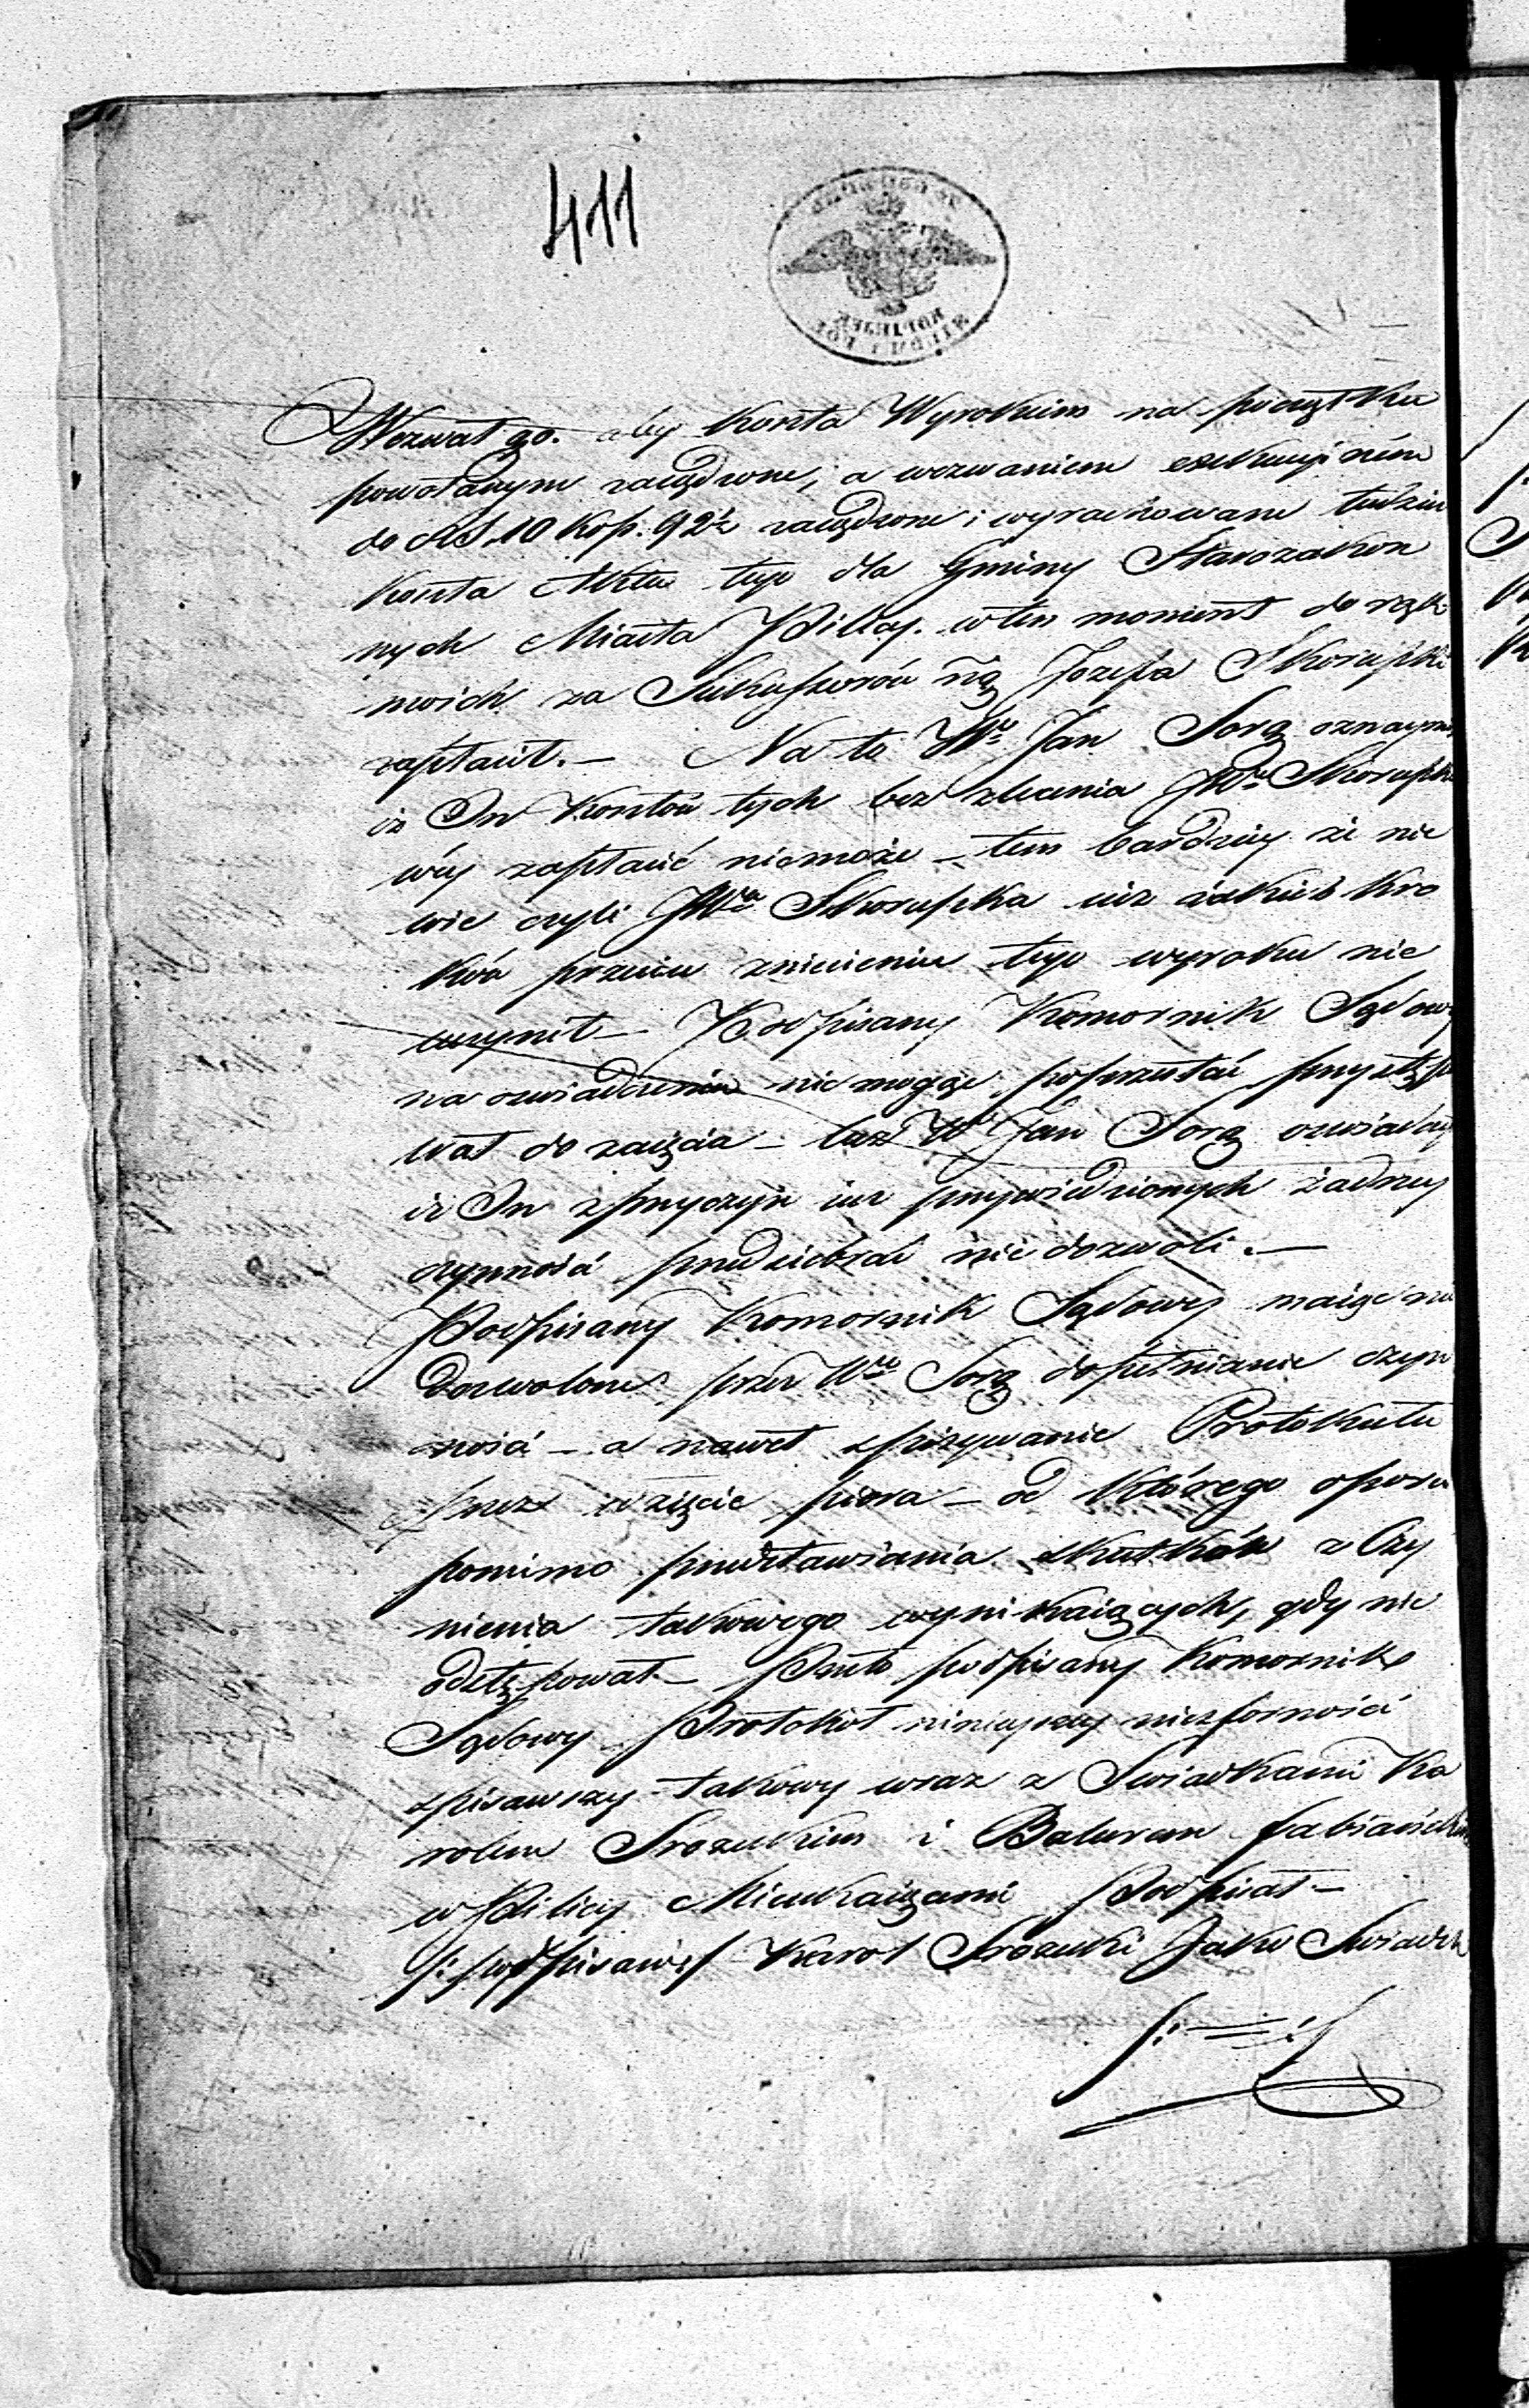 411
Wezwał go. aby koszta Wyrokiem na początku
powołanym zasądzone, a wezwaniem exekucyjném
do RS. 10 kop. 92½ zasądzone i wyrachowane tudzież
koszta Aktu tego dla Gminy Starozakon
nych Miasta Pilicy. w ten moment do rąk
moich za Sukcessorów Józefa Skorupki
zapłacił. — Na to Wny Jan Sorg oznaymił
iż On kosztów tych bez zlecenia JWnéj Skorupko
wéj zapłacić niemoże — tem bardziéj że nie
wie czyli JWna Skorupka iuż iakich kro
ków przeciw zniesieniu tego wyroku nie
uczynił — Podpisany Komornik Sądowy
na oświadczeniu nie mogąc poprzestać przystępo
wał do zaięcia — lecz Wny Jan Sorg oświadczył
iż On z przyczyn iuż przywiedzionych żadney
czynności przedsiebrać nie dozwoli. —
Podpisany Komornik Sądowy maiąc nie
dozwolone przez Wgo Sorg dopełnianie czyn
ności — a nawet spisywanie Protokułu
przez wzięcie pióra — od którego oporu
pomimo przedstawiania skutków z Czy
nienia takowego wynikaiących, gdy nie
odstępował — Przeto podpisany Komornik
Sądowy Protokół ninieyszy niesforności
spisawszy takowy wraz z Swiadkami Ka
rolem Srozeckim i Balcerem Fabiański
w Pilicy Mieszkaiącemi Podpisał —
/: podpisani:/ Karol Srozecki Jako Swiadek